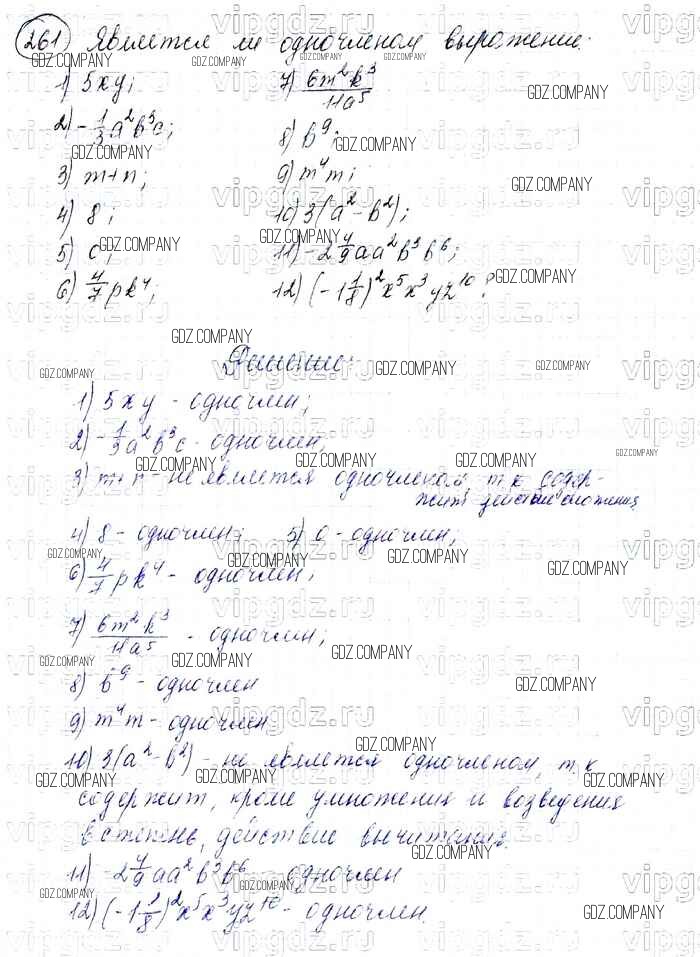 261) Является ли одночленом выражение:
1) 5xy; 7) 6m²k³/11a⁵
2) -1/3 a²b³c; 8) b⁹;
3) m+n; 9) m⁴m;
4) 8; 10) 3(a²-b²);
5) c; 11) -2 4/9 aa²b³b⁶;
6) 4/7 pk⁴; 12) (-1 1/8)²x⁵x³yz¹⁰?
Решение:
1) 5xy - одночлен;
2) -1/3 a²b³c - одночлен,
3) m+n - не является одночленом, т.к. содер-
жит действие сложения,
4) 8 - одночлен; 5) c - одночлен;
6) 4/7 pk⁴ - одночлен;
7) 6m²k³/11a⁵ - одночлен;
8) b⁹ - одночлен
9) m⁴m - одночлен
10) 3(a²-b²) - не является одночленом, т.к
содержит, кроме умножения и возведения
в степень, действие вычитания.
11) -2 4/9 aa²b³b⁶ - одночлен
12) (-1 1/8)²x⁵x³yz¹⁰ - одночлен.
vipgdz.ru
GDZ.COMPANY